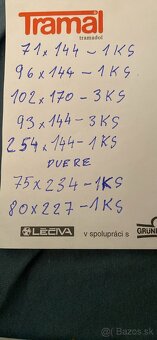 Tramal
tramadol
71 x 144 - 1 KS
96 x 144 - 1 KS
102 x 170 - 3 KS
93 x 144 - 3 KS
254 x 144 - 1 KS
DVERE
75 x 234 - 1 KS
80 x 227 - 1 KS
LÉČIVA v spolupráci s GRÜN
bazos.sk